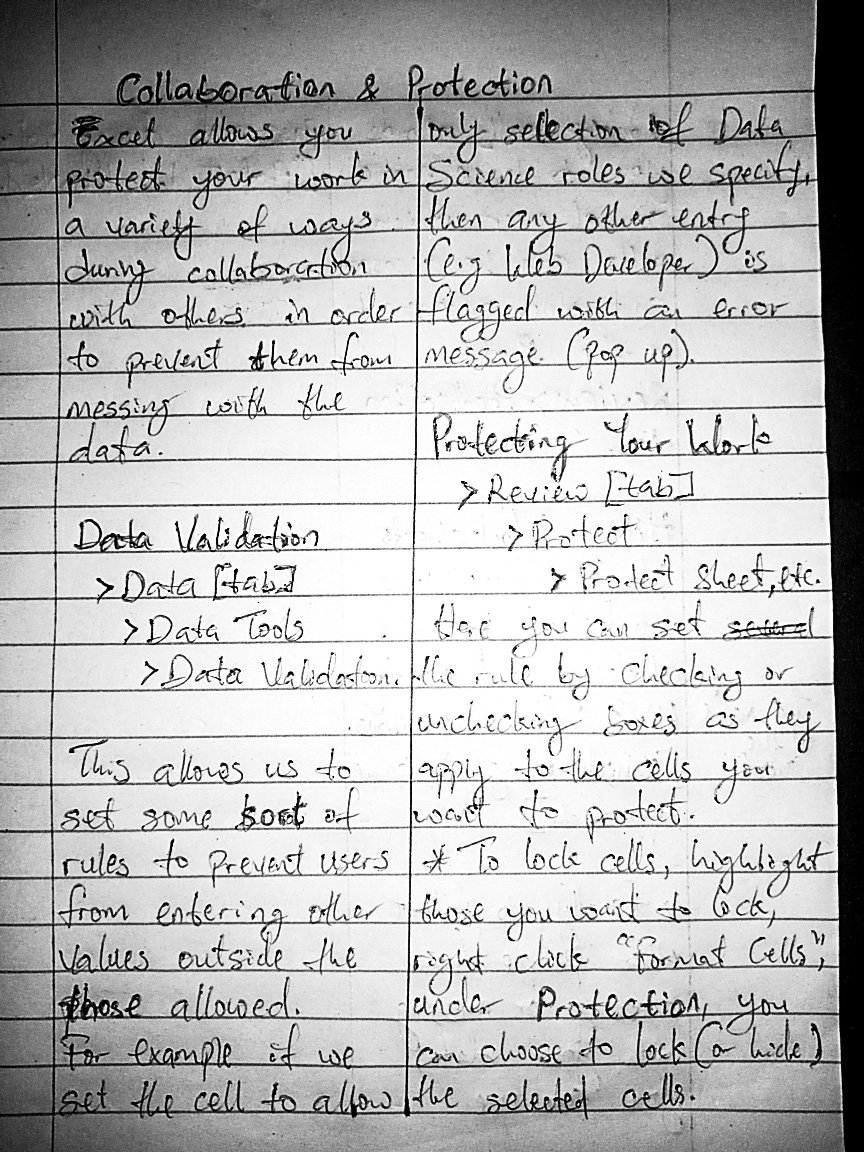 Collaboration & Protection
Excel allows you
protect your work in
a variety of ways
during collaboration
with others in order
to prevent them from
messing with the
data.
Data Validation
> Data [tab]
> Data Tools
> Data Validation.
This allows us to
set some sort of
rules to prevent users
from entering other
values outside the
those allowed.
For example if we
set the cell to allow
only selection of Data
Science roles we specify,
then any other entry
(e.g Web Developer) is
flagged with an error
message. (pop up).
Protecting Your Work
> Review [tab]
> Protect
> Protect sheet, etc.
Here you can set several
the rule by checking or
unchecking boxes as they
apply to the cells you
want to protect.
* To lock cells, highlight
those you want to lock,
right click "Format Cells",
under Protection, you
can choose to lock (or hide)
the selected cells.